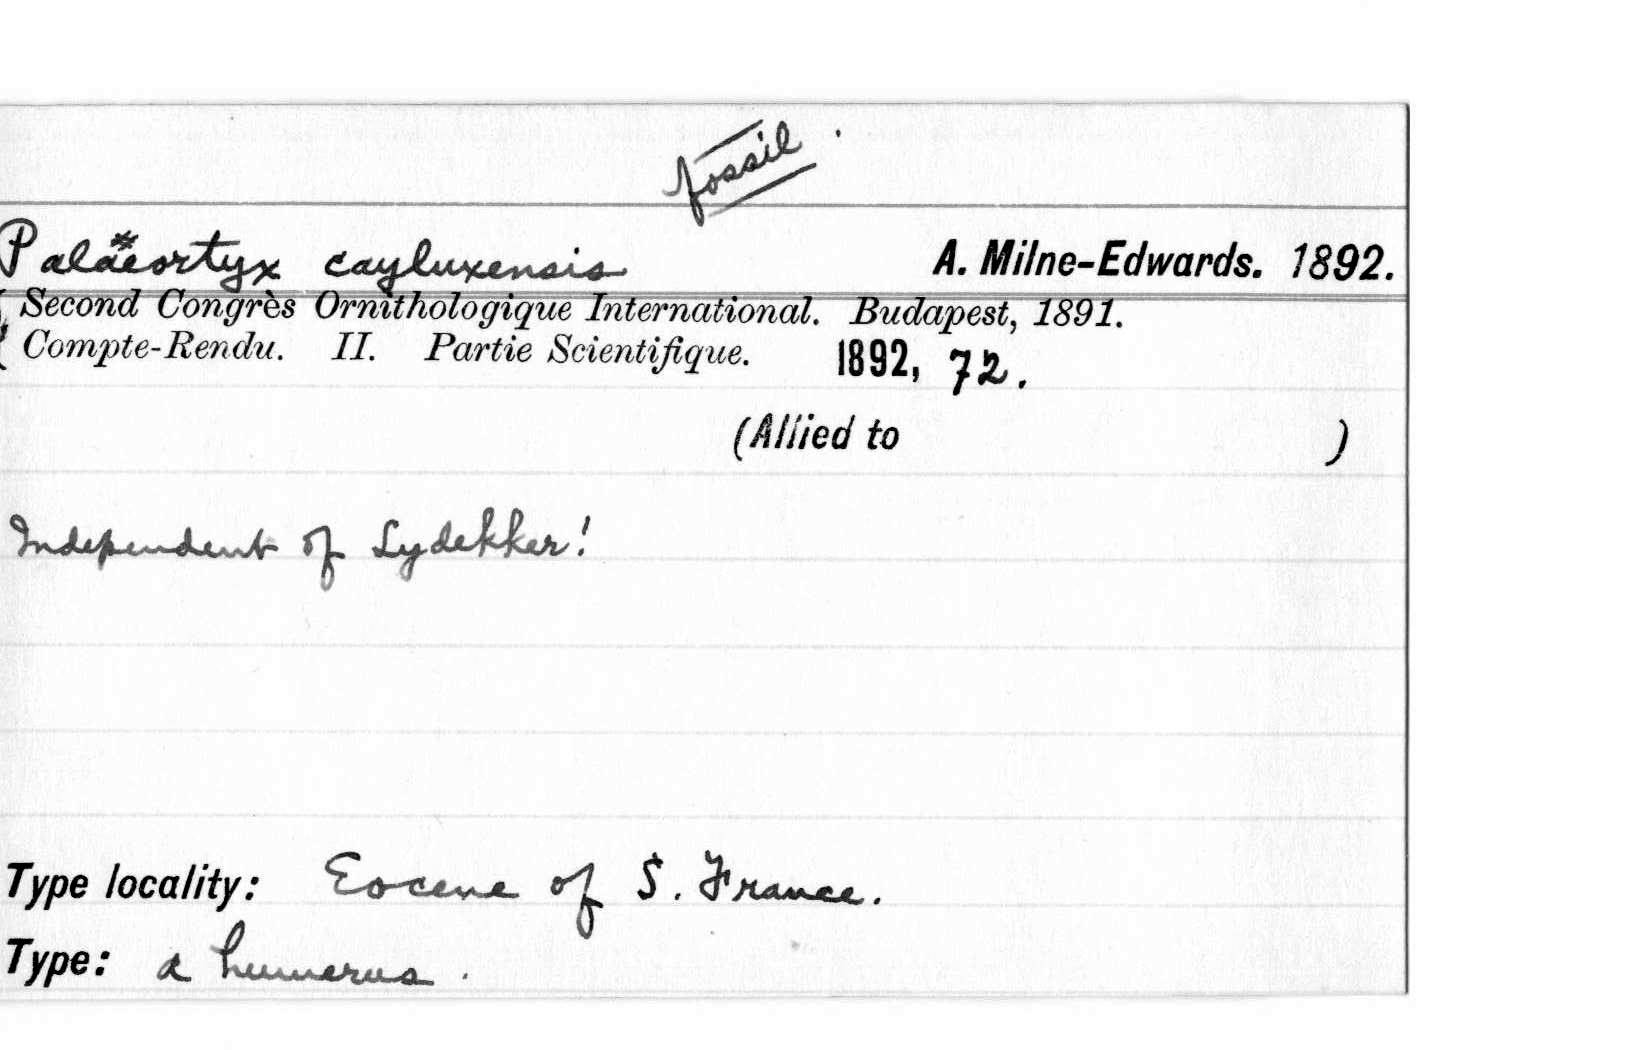 fossil.
Palaeortyx cayluxensis A. Milne-Edwards. 1892.
Second Congrès Ornithologique International. Budapest, 1891.
Compte-Rendu. II. Partie Scientifique. 1892, 72.
(Allied to )
Independent of Lydekker!
Type locality: Eocene of S. France.
Type: a humerus.